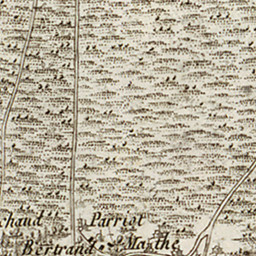 chaud Parriot
Bertrand Marthe